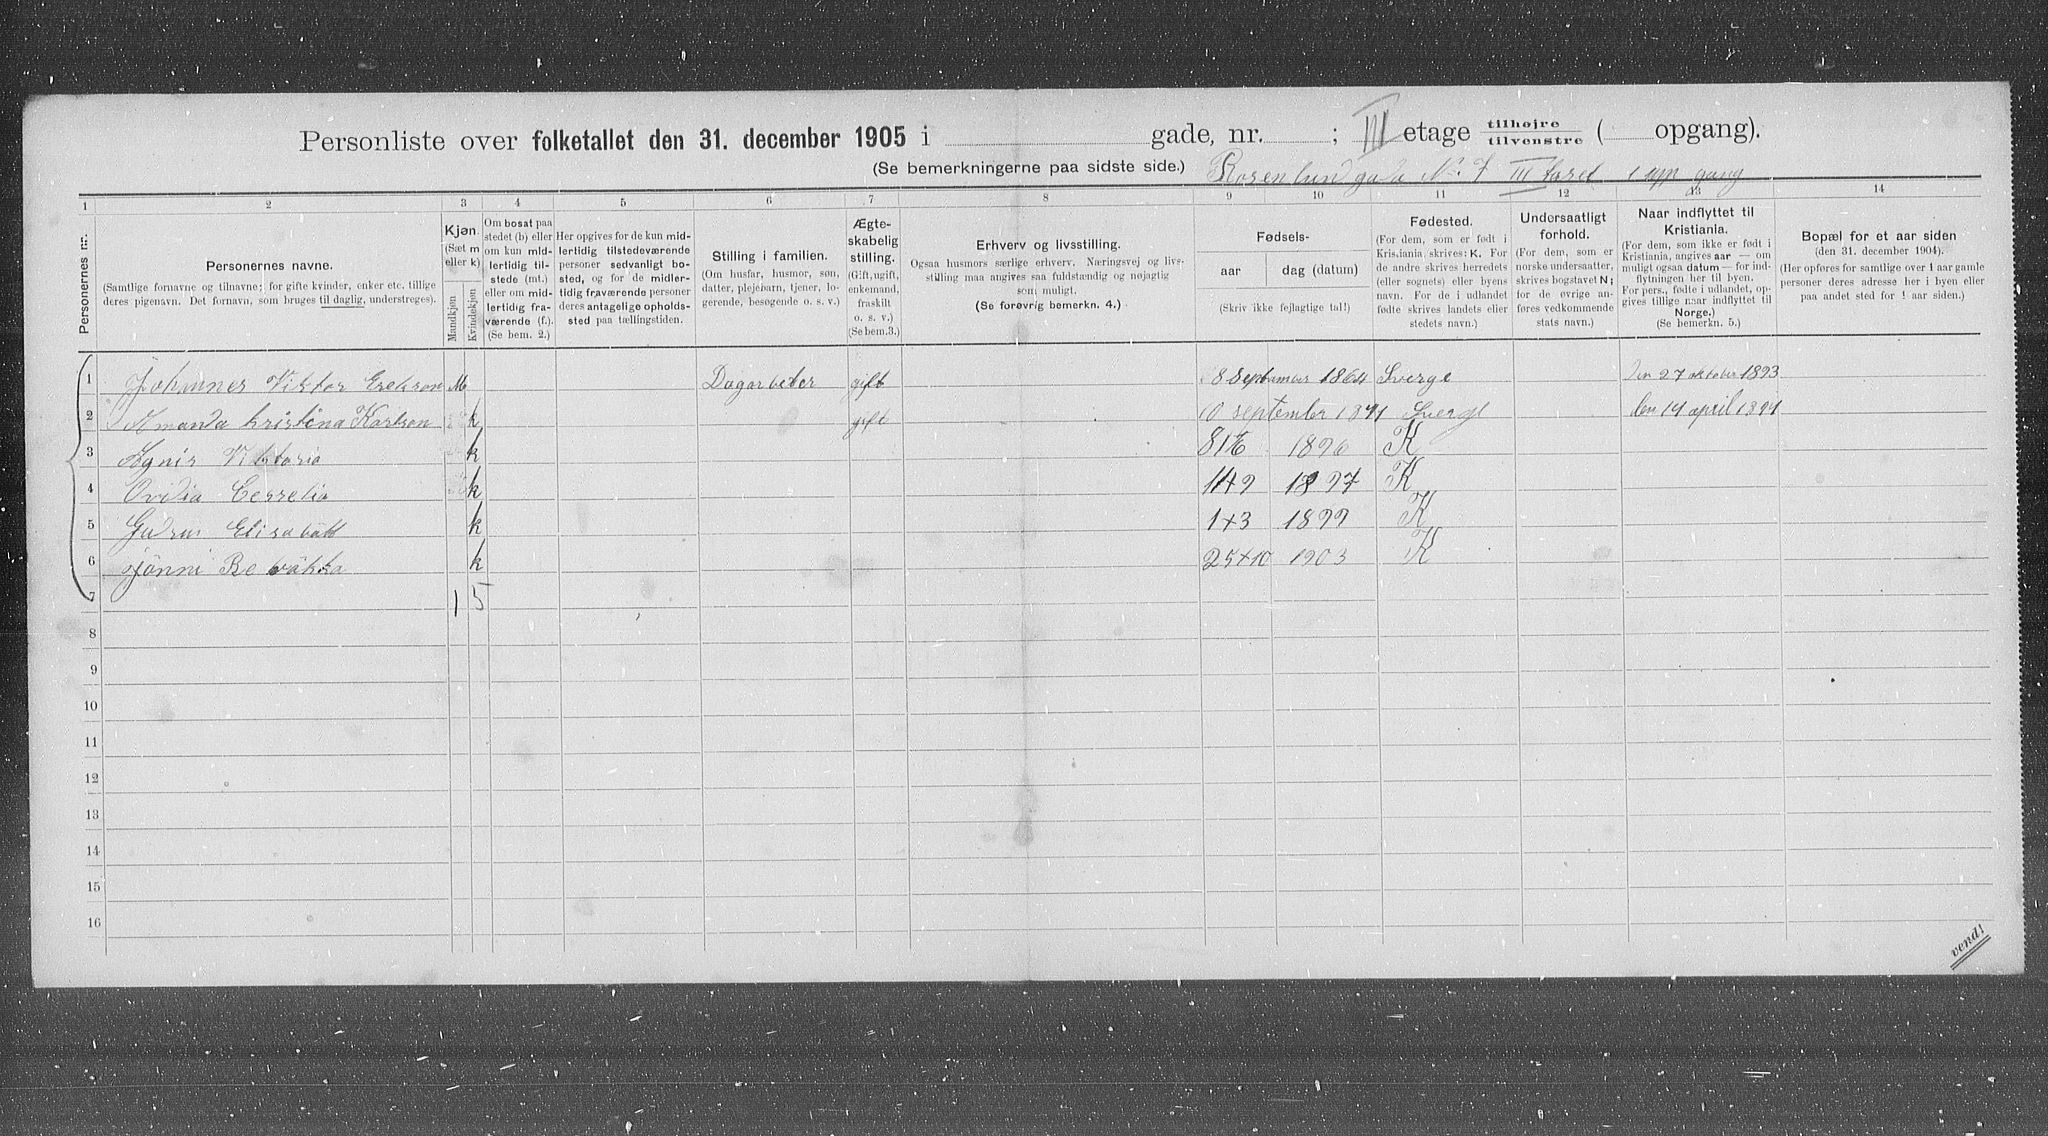 Personliste over folketallet den 31. december 1905 i gade, nr. ; III etage tilhøjre tilvenstre ( opgang).
(Se bemerkningerne paa sidste side.) Rosenlundgada No: 7 III opgang
1 2 3 4 5 6 7 8 9 10 11 12 13 14
Personernes nr.
Personernes navne.
(Samtlige fornavne og tilnavne; for gifte kvinder, enker etc. tillige
deres pigenavn. Det fornavn, som bruges til daglig, understreges).
Kjøn.
(Sæt m
eller k)
Mandkjøn
Kvindekjøn
Om bosat paa
stedet (b) eller
om kun midlertidig
tilstede (mt.)
eller om midlertidig
fraværende (f.).
(Se bem. 2.)
Her opgives for de kun midlertidig
tilstedeværende
personer sedvanligt bosted,
og for de midlertidig
fraværende personer
deres antagelige opholdssted
paa tællingstiden.
Stilling i familien.
(Om husfar, husmor, søn,
datter, plejebarn, tjener, logerende,
besøgende o. s. v.)
Ægteskabelig
stilling.
(Gift, ugift,
enkemand,
fraskilt
o. s. v.)
(Se bem.3.)
Erhverv og livsstilling.
Ogsaa husmors særlige erhverv. Næringsvej og livsstilling
maa angives saa fuldstændig og nøjagtig
som muligt.
(Se forøvrig bemerkn. 4.)
Fødsels-
aar
dag (datum)
(Skriv ikke fejlagtige tal!)
Fødested.
(For dem, som er født i
Kristiania, skrives: K. For
de andre skrives herredets
(eller sognets) eller byens
navn. For de i udlandet
fødte skrives landets eller
stedets navn.)
Undersaatligt
forhold.
(For dem, som er
norske undersaatter,
skrives bogstavet N;
for de øvrige anføres
vedkommende
stats navn.)
Naar indflyttet til
Kristiania.
(For dem, som ikke er født i
Kristiania, angives aar — om
muligt ogsaa datum — for indflytningen
her til byen.
For pers., fødte i udlandet, opgives
tillige naar indflyttet til
Norge.)
(Se bemerkn. 5.)
Bopæl for et aar siden
(den 31. december 1904).
(Her opføres for samtlige over 1 aar gamle
personer deres adresse her i byen eller
paa andet sted for 1 aar siden.)
1 Johannes Viktor Erekson M Dagarbeter gift 8 September 1864 Sverge Den 27 oktober 1893
2 Amanda kristina Karlson k gift 10 september 1871 Sverge den 14 april 1891
3 Agnis Viktoria k 8 1896 K
4 Ovidia Cesselia k 1897 K
5 Gudrun Elisabätt k 1+3 1899 K
6 jönni Rebäkka k 25+10 1903 K
7 1 5
8
9
10
11
12
13
14
15
16
vend!